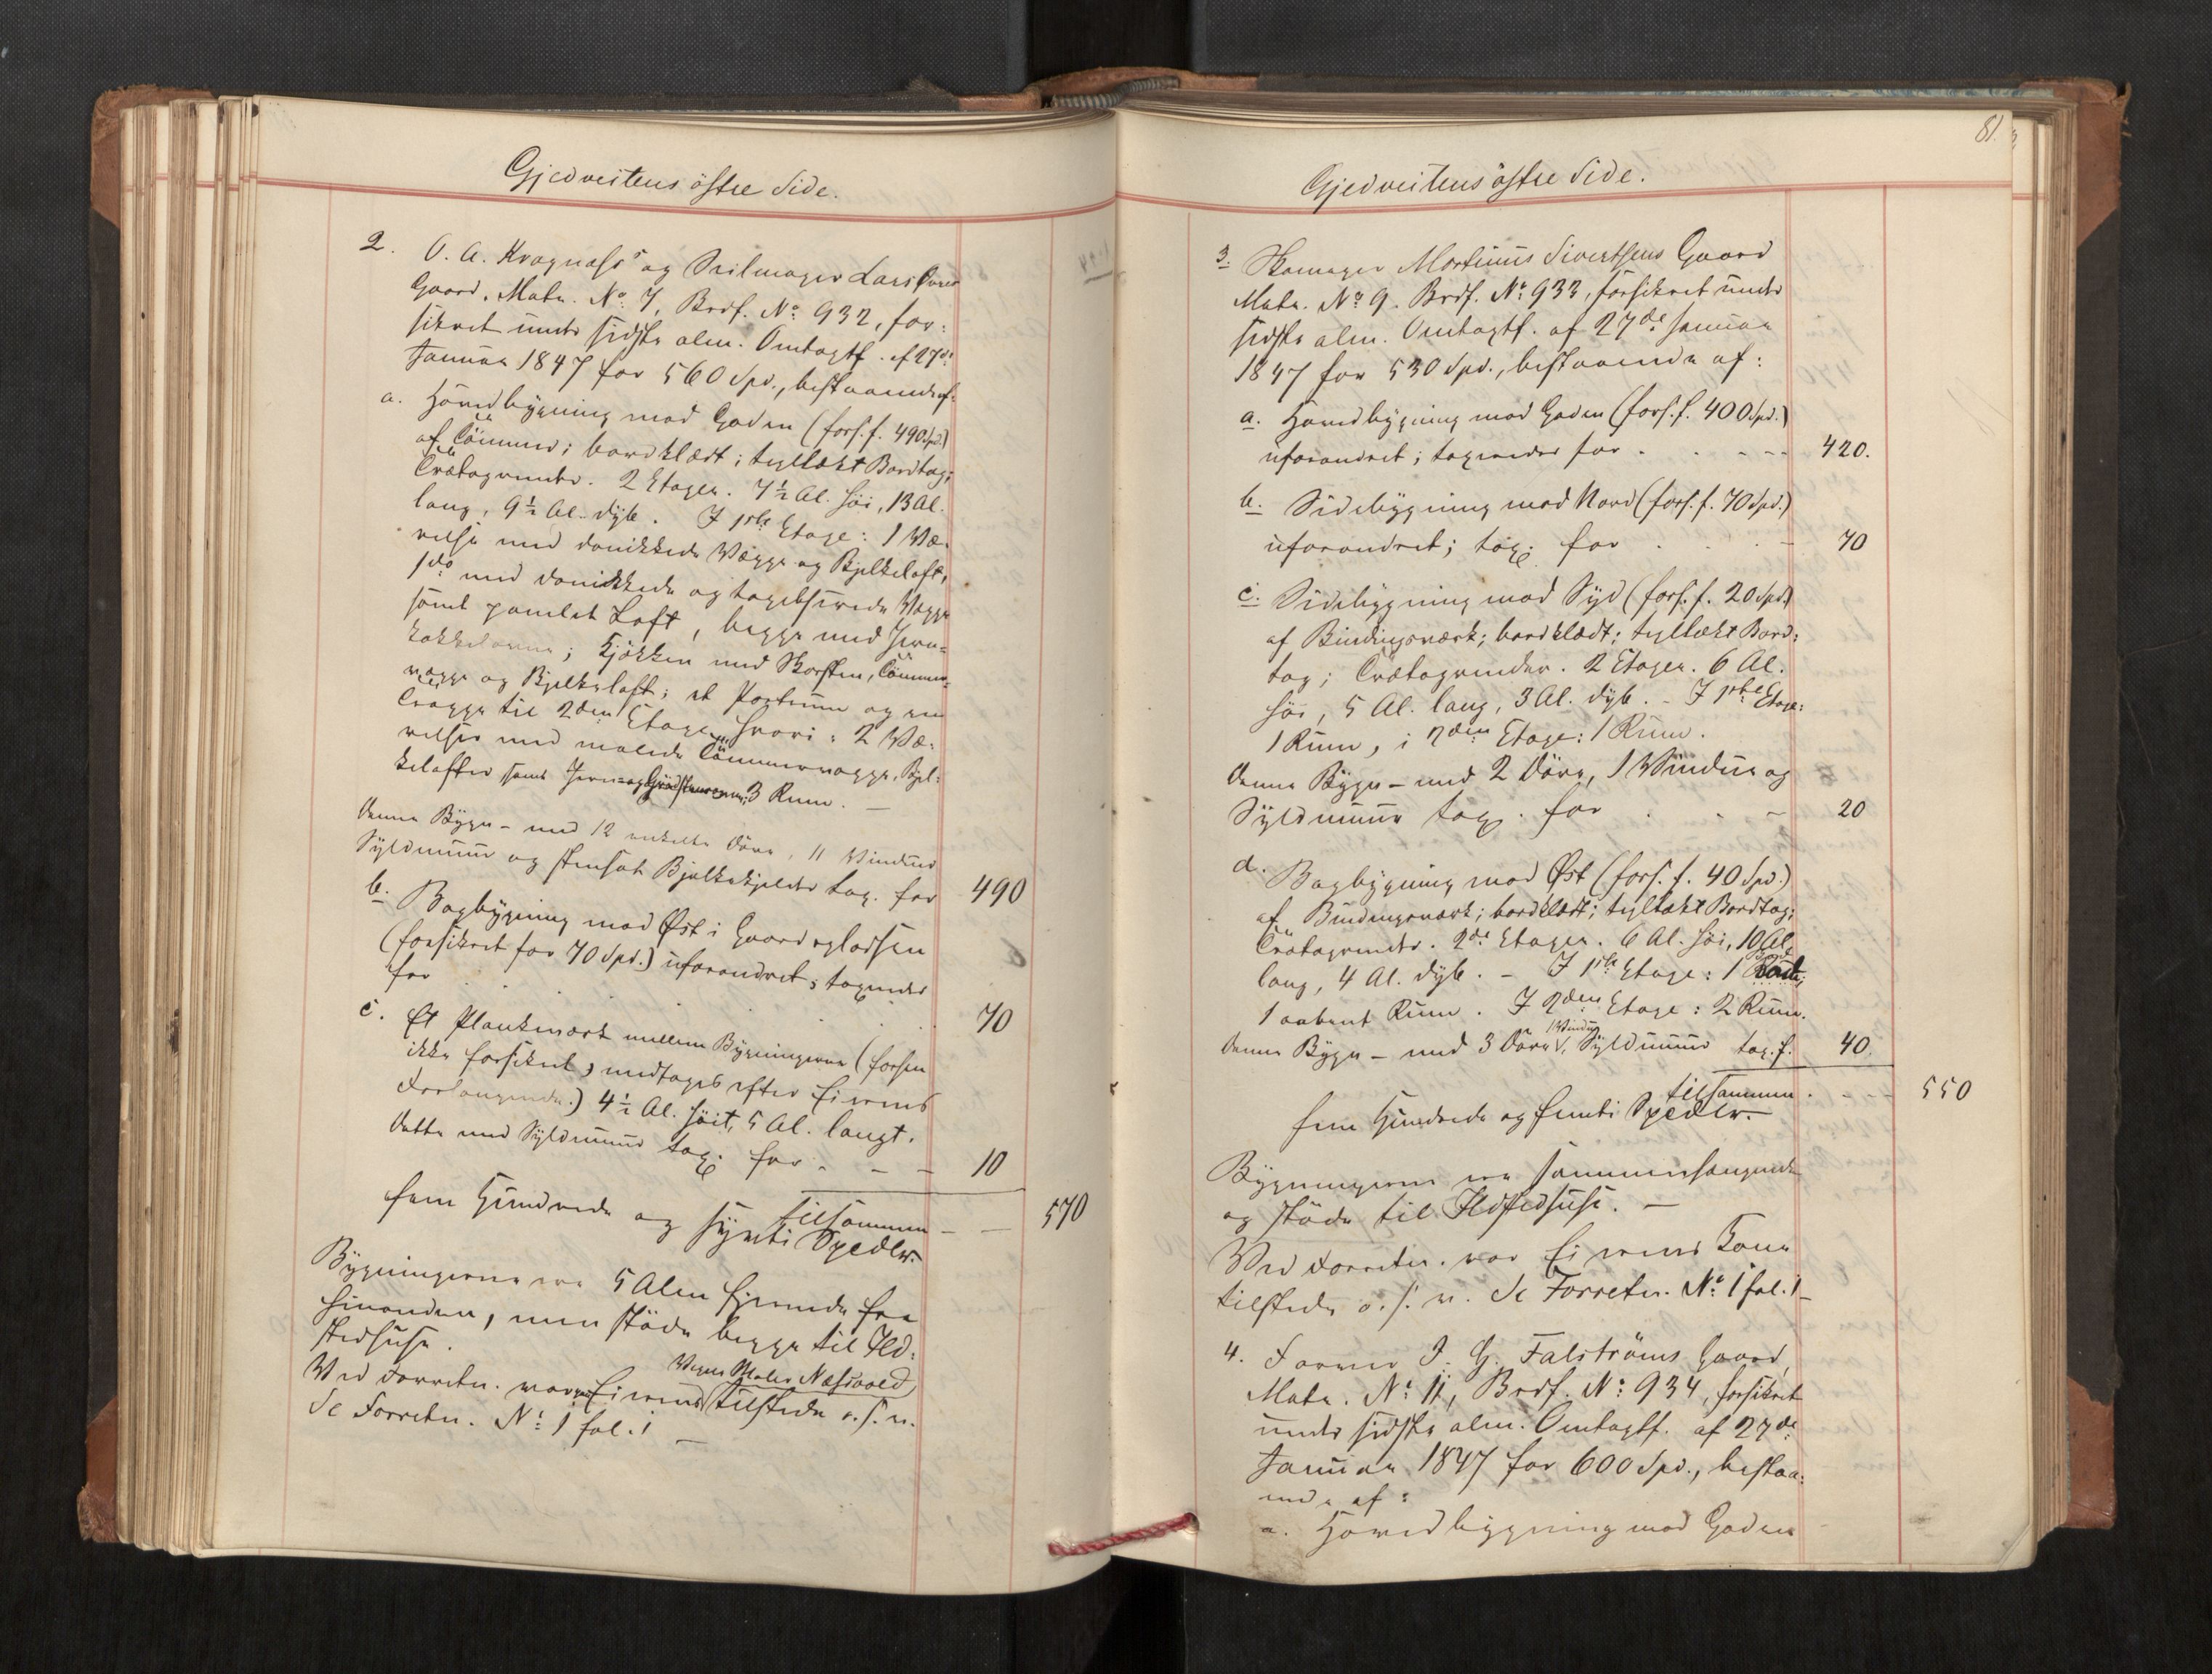 Gjedveitens östre Side.
2. O. A. Kvagnæss og Seilmager Lars
Gaard, Matr. No 7, Brdf. No 932, for-
sikret under sidste alm. Omtaxtf. af 27de
Januar 1847 for 560 Spd., bestaaende af:
a. Hovedbygning mod Gaden (fors. f. 490 Spd.)
af Tömmer; bordklædt; teglækt Bordtag;
Trætagrender. 2 Etager. 7½ Al. höi, 13 Al.
lang, 9½ Al. dyb. I 1ste Etage: 1 Væ-
relse med panelede Vægge og Bjelkeloft,
1 do med panelede og tapetserede Vægge
samt gamlet Loft, begge med Jern-
kakkelovne; Kjökken med Skorsten, Tömmer-
vægge og Bjelkeloft; et Portrum og en
Trappe til 2den Etage, hvori: 2 Væ-
relser med malede Tömmervægge, Bjel-
kelofter samt Jern- og 3 Rum. —
Denne Bygn - med 12 enkelte Döre, 11 Vinduer
Syldmuur og stensat Bjelkekjelder tax. for 490
b. Bagbygning mod Öst i Gaardspladsen
(forsikret for 70 Spd.) uforandret; taxeredes
for . . . . 70
c. Et Plankeværk mellem Bygningerne (forhen
ikke forsikret, medtages efter Eierens
Forlangende.) 4½ Al. höit, 5 Al. langt.
Dette med Syldmuur tax. for - - - 10
tilsammen — — 570
fem Hundrede og sytti Spedlr.
Bygningerne ere 5 Alen fjernede fra
hinanden, men stöde begge til Ild-
stedhuse.
Ved Forretn. var paa Eierens Vegne Maler Næsvold tilstede o. s. v.
Se Forretn. No 1 fol. 1 —
81.
Gjedveitens östre Side.
3. Skomager Martinus Sivertsens Gaard
Matr. No 9. Brdf. No 933, forsikret under
sidste alm. Omtaxtf. af 27de Januar
1847 for 530 Spd., bestaaende af:
a. Hovedbygning mod Gaden (fors. f. 400 Spd.)
uforandret; taxeredes for . . - - - 420.
b. Sidebygning mod Nord (fors. f. 70 Spd.)
uforandret; tax. for . . . - 70
c. Sidebygning mod Syd (fors. f. 20 Spd.)
af Bindingsværk; bordklædt; teglækt Bord-
tag; Trætagrender. 2 Etager. 6 Al.
höi, 5 Al. lang, 3 Al. dyb. - I 1ste Etage:
1 Rum, i 2den Etage: 1 Rum.
Denne Bygn - med 2 Döre, 1 Vindue og
Syldmuur tax. for . . - 20
d. Bagbygning mod Øst (fors. f. 40 Spd.)
af Bindingsværk; bordklædt; teglækt Bordtag;
Trætagrender. 2de Etager. 6 Al. höi, 10 Al.
lang, 4 Al. dyb. - I 1ste Etage: 1 Bod,
1 aabent Rum. I 2den Etage: 2 Rum.
Denne Bygn - med 3 Döre, 1 Vindue, Syldmuur tax. f. 40.
tilsammen . - - - 550
fem Hundrede og femti Spedlr.
Bygningerne ere sammenhængende
og stöde til Ildstedhuse. —
Ved Forretn. var Eierens Kone
tilstede o. s. v. Se Forretn. No 1 fol. 1 —
4. Farver J. G. Falströms Gaard,
Matr. No 11, Brdf. No 934, forsikret
under sidste alm. Omtaxtf. af 27de
Januar 1847 for 600 Spd., bestaa-
ende af:
a. Hovedbygning mod Gaden